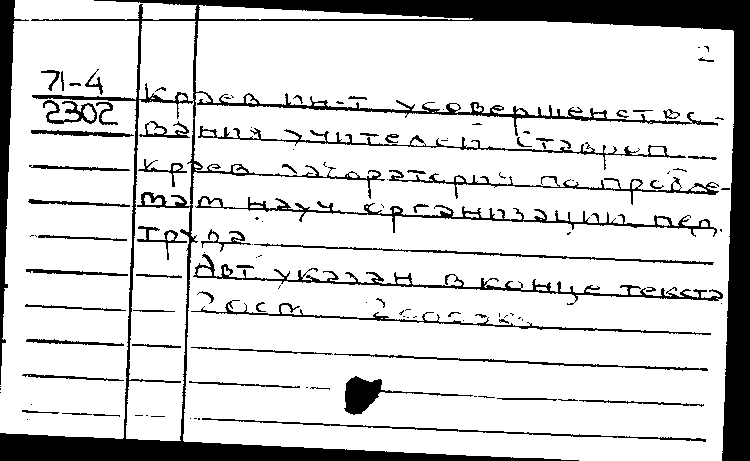 2
71-4
2302
Краев ин-т усовершенство-
вания учителей Ставроп
краев лаборатория по пробле-
мам науч организации пед.
труда
Авт указан в конце текста